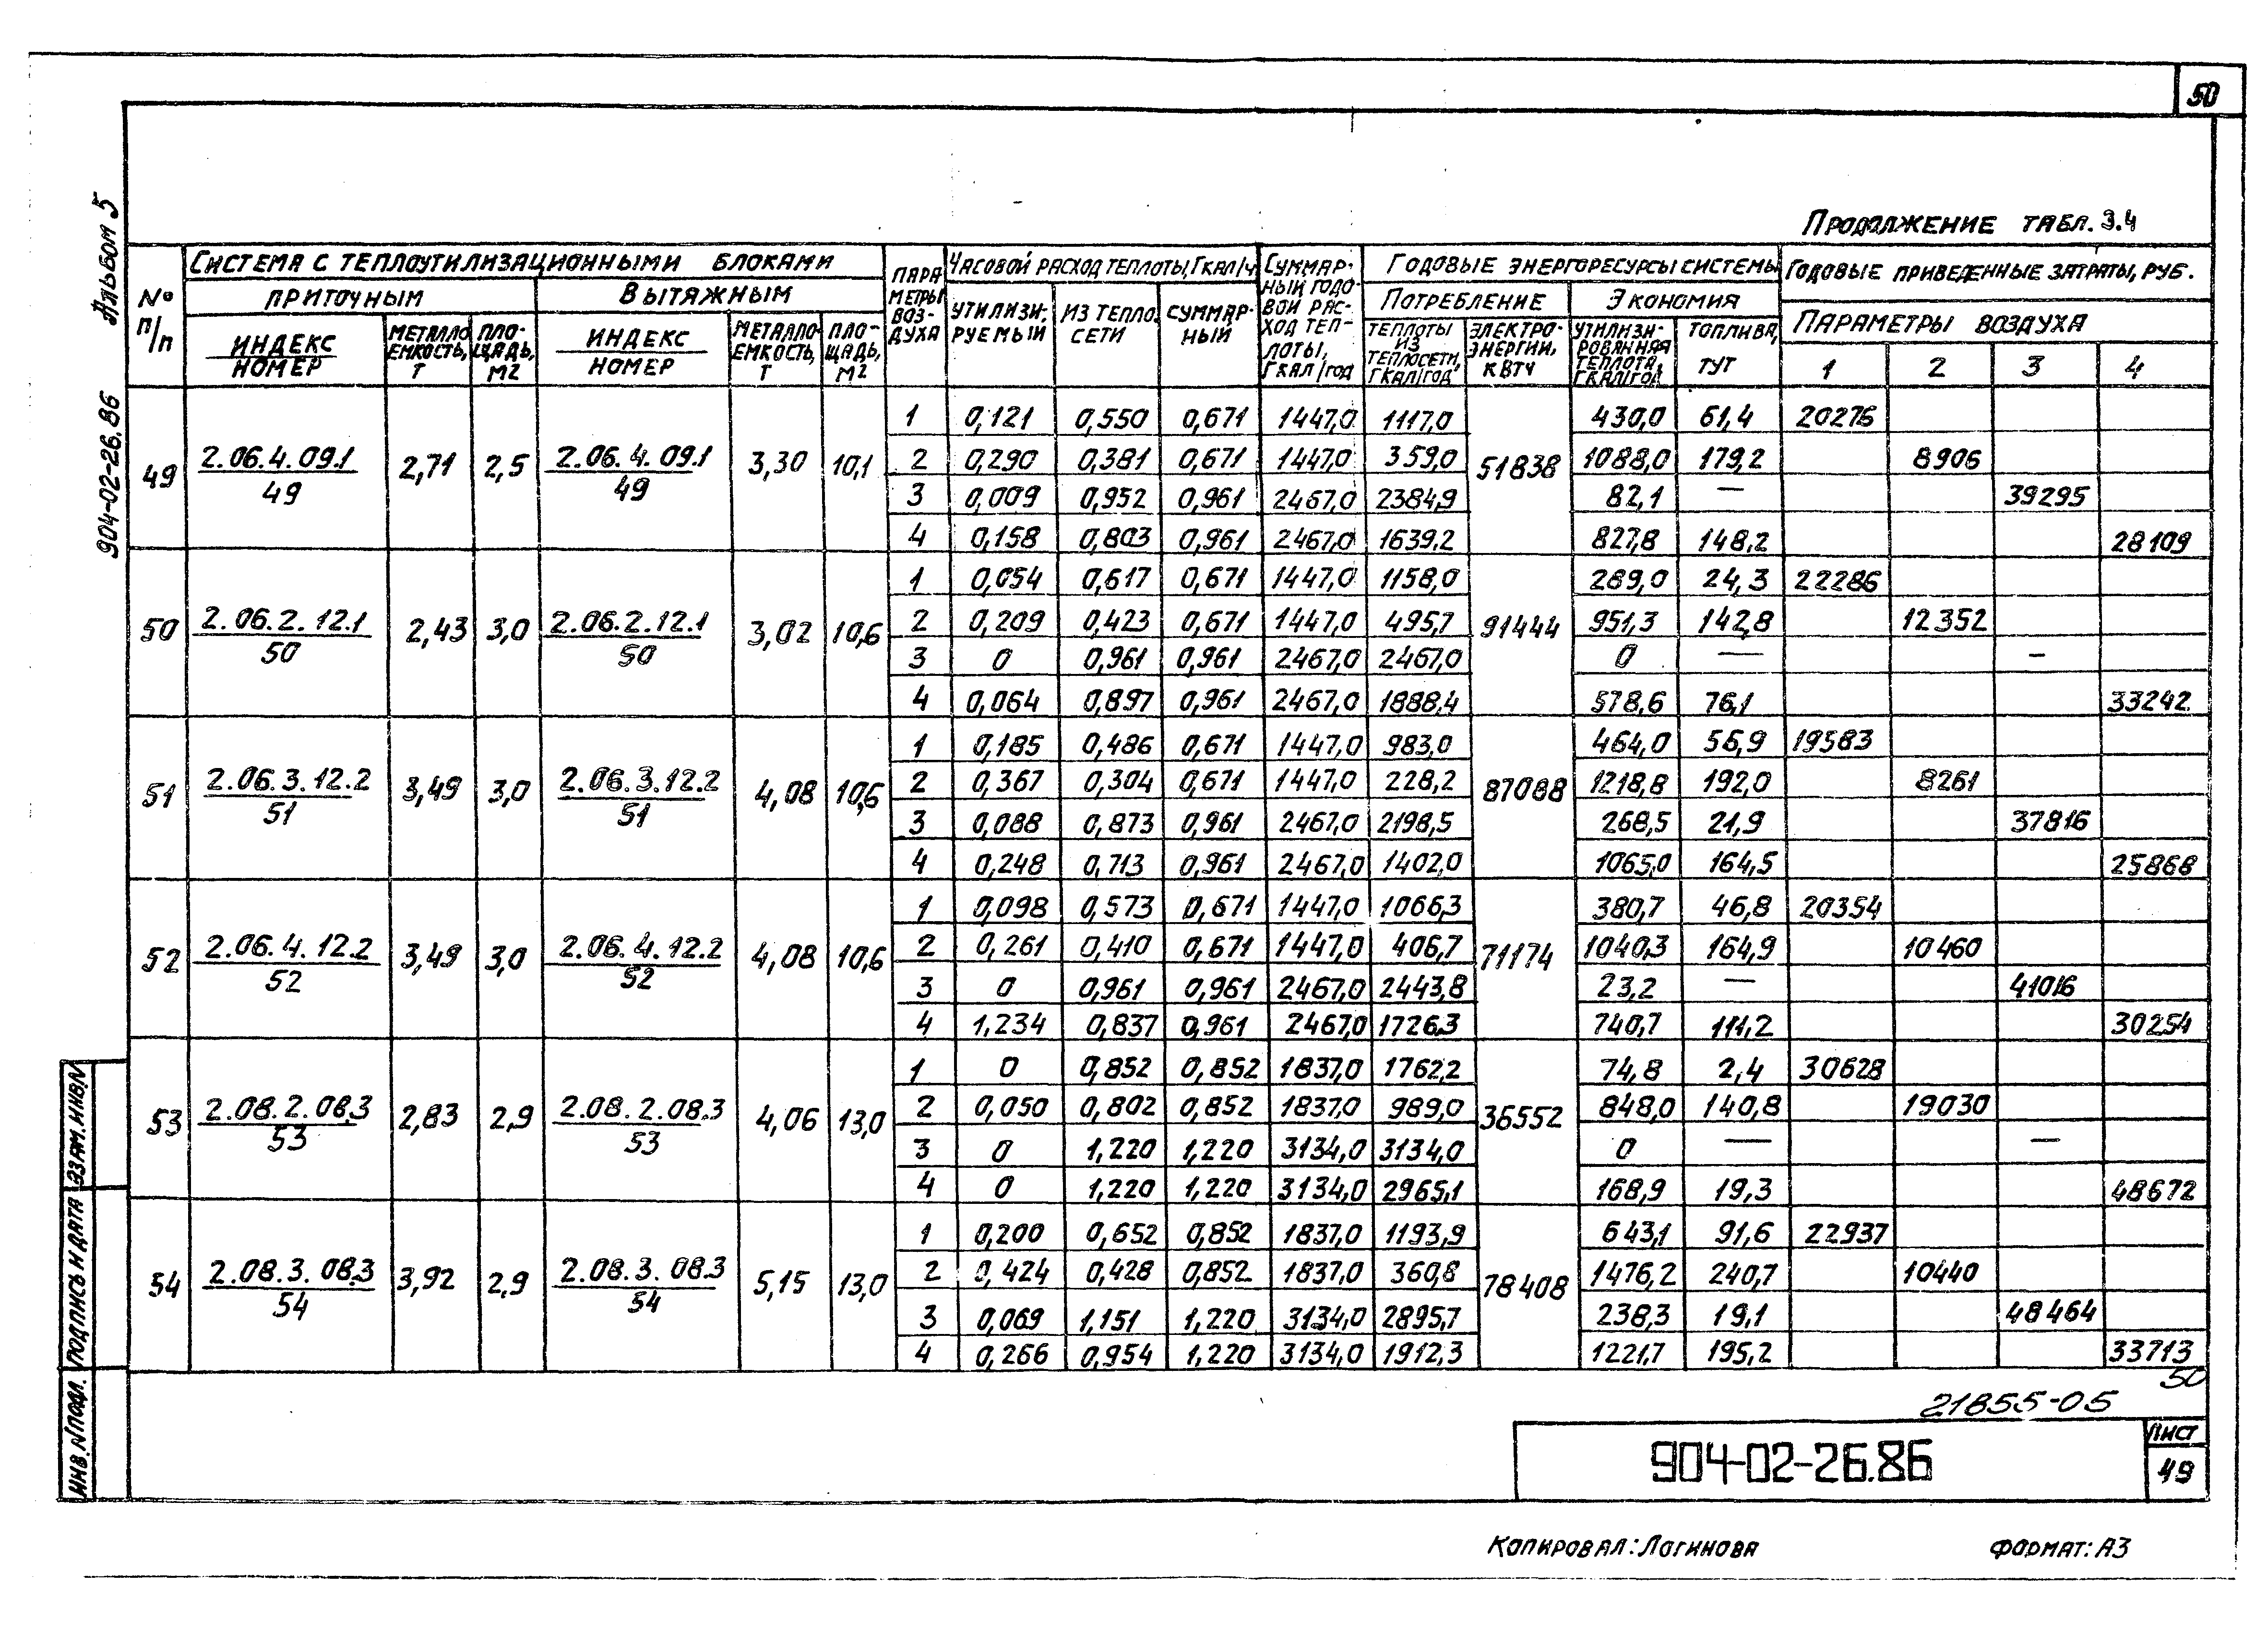 50
Альбом 5
904-02-26.86
Продолжение табл. 3.4
№ п/п
Система с теплоутилизационными блоками
приточным
Вытяжным
индекс
номер
металлоемкость, т
площадь, м2
индекс
номер
металлоемкость, т
площадь, м2
параметры воздуха
Часовой расход теплоты, Гкал/ч
утилизируемый
из теплосети
суммарный
Суммарный годовой расход теплоты, Гкал/год
Годовые энергоресурсы системы
Потребление
Экономия
теплоты из теплосети, Гкал/год
электроэнергии, кВтч
утилизированная теплота, Гкал/год
топлива, тут
Годовые приведенные затраты, руб.
Параметры воздуха
1 2 3 4
49 2.06.4.09.1/49 2,71 2,5 2.06.4.09.1/49 3,30 10,1 51838
1 0,121 0,550 0,671 1447,0 1117,0 430,0 61,4 20276
2 0,290 0,381 0,671 1447,0 359,0 1088,0 179,2 8906
3 0,009 0,952 0,961 2467,0 2384,9 82,1 — 39295
4 0,158 0,803 0,961 2467,0 1639,2 827,8 148,2 28109
50 2.06.2.12.1/50 2,43 3,0 2.06.2.12.1/50 3,02 10,6 91444
1 0,054 0,617 0,671 1447,0 1158,0 289,0 24,3 22286
2 0,209 0,423 0,671 1447,0 495,7 951,3 142,8 12352
3 0 0,961 0,961 2467,0 2467,0 0 — –
4 0,064 0,897 0,961 2467,0 1888,4 578,6 76,1 33242
51 2.06.3.12.2/51 3,49 3,0 2.06.3.12.2/51 4,08 10,6 87088
1 0,185 0,486 0,671 1447,0 983,0 464,0 56,9 19583
2 0,367 0,304 0,671 1447,0 228,2 1218,8 192,0 8261
3 0,088 0,873 0,961 2467,0 2198,5 268,5 21,9 37816
4 0,248 0,713 0,961 2467,0 1402,0 1065,0 164,5 25868
52 2.06.4.12.2/52 3,49 3,0 2.06.4.12.2/52 4,08 10,6 71174
1 0,098 0,573 0,671 1447,0 1066,3 380,7 46,8 20354
2 0,261 0,410 0,671 1447,0 406,7 1040,3 164,9 10460
3 0 0,961 0,961 2467,0 2443,8 23,2 — 41016
4 1,234 0,837 0,961 2467,0 1726,3 740,7 111,2 30254
53 2.08.2.08.3/53 2,83 2,9 2.08.2.08.3/53 4,06 13,0 36552
1 0 0,852 0,852 1837,0 1762,2 74,8 2,4 30628
2 0,050 0,802 0,852 1837,0 989,0 848,0 140,8 19030
3 0 1,220 1,220 3134,0 3134,0 0 — —
4 0 1,220 1,220 3134,0 2965,1 168,9 19,3 48672
54 2.08.3.08.3/54 3,92 2,9 2.08.3.08.3/54 5,15 13,0 78408
1 0,200 0,652 0,852 1837,0 1193,9 643,1 91,6 22937
2 0,424 0,428 0,852 1837,0 360,8 1476,2 240,7 10440
3 0,069 1,151 1,220 3134,0 2895,7 238,3 19,1 48464
4 0,266 0,954 1,220 3134,0 1912,3 1221,7 195,2 33713
взам. инв. N
подпись и дата
инв. N подл.
50
21855-05
904-02-26.86
Лист
49
Копировал: Логинова
формат: А3